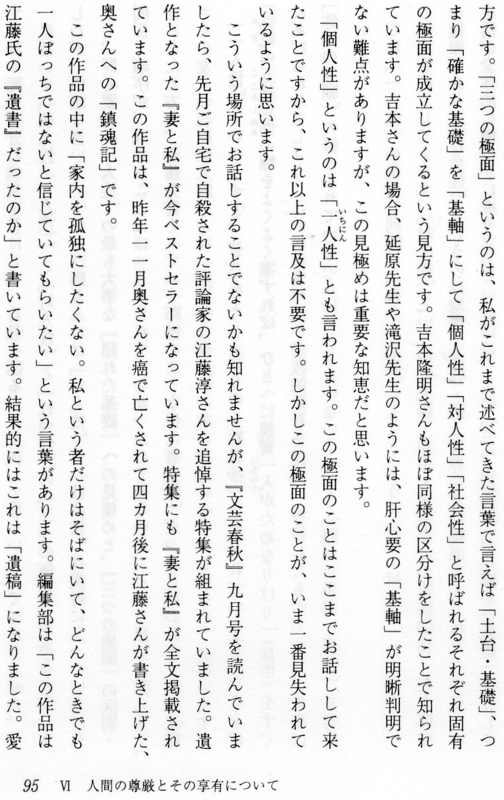 方です。「三つの極面」というのは、私がこれまで述べてきた言葉で言えば「土台・基礎」、つ
まり「確かな基礎」を「基軸」にして「個人性」「対人性」「社会性」と呼ばれるそれぞれ固有
の極面が成立してくるという見方です。吉本隆明さんもほぼ同様の区分けをしたことで知られ
ています。吉本さんの場合、延原先生や滝沢先生のようには、肝心要の「基軸」が明晰判明で
ない難点がありますが、この見極めは重要な知恵だと思います。
「個人性」というのは「一人性」とも言われます。この極面のことはここまでお話しして来
いちにん
たことですから、これ以上の言及は不要です。しかしこの極面のことが、いま一番見失われて
いるように思います。
こういう場所でお話しすることでないかも知れませんが、『文芸春秋』九月号を読んでいま
したら、先月ご自宅で自殺された評論家の江藤淳さんを追悼する特集が組まれていました。遺
作となった『妻と私』が今ベストセラーになっています。特集にも『妻と私』が全文掲載され
ています。この作品は、昨年一一月奥さんを癌で亡くされて四カ月後に江藤さんが書き上げた、
奥さんへの「鎮魂記」です。
この作品の中に「家内を孤独にしたくない。私という者だけはそばにいて、どんなときでも
一人ぼっちではないと信じていてもらいたい」という言葉があります。編集部は「この作品は
江藤氏の『遺書』だったのか」と書いています。結果的にはこれは「遺稿」になりました。愛
95 Ⅵ 人間の尊厳とその享有について